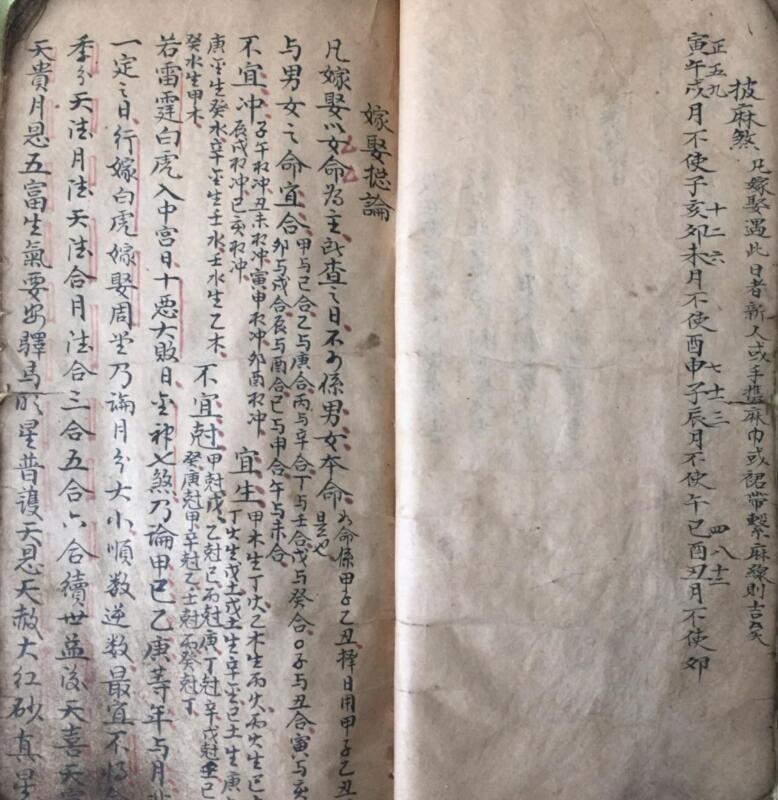 披麻煞 凡嫁娶遇此日者新人或手携麻巾或裙帶繫麻線則吉矣
正五九 十二六 七十一三 四八十二
寅午戌月不使子亥卯未月不使酉申子辰月不使午巳酉丑月不使卯
嫁娶捴論
凡嫁娶以女命為主所查之日不可係男女本命 如命係甲子乙丑擇日用甲子乙丑
是也
與男女之命宜合 甲与己合乙与庚合丙与辛合丁与壬合戊与癸合○子与丑合寅与亥
卯与戌合辰与酉合巳与申合午与未合
不宜冲 子午相冲丑未相冲寅申相冲卯酉相冲
辰戌相冲巳亥相冲
宜生 甲木生丁火乙木生丙火丙火生己
丁火生戊土戊土生辛金己土生庚
庚金生癸水辛金生壬水壬水生乙木
癸水生甲木
不宜尅 甲尅戊乙尅己丙尅庚丁尅辛戊尅壬己
癸庚尅甲辛尅乙壬尅丙癸尅丁
若雷霆白虎入中宮日十惡大敗日金神七煞乃論甲己乙庚等年与月
一定之日行嫁白虎嫁娶周堂乃論月分大小順数逆数最宜不将
季分天德月德天德合月德合三合五合六合續世益後天喜天
天貴月恩五富生氣要安驛馬明星普護天恩天赦大紅砂真星